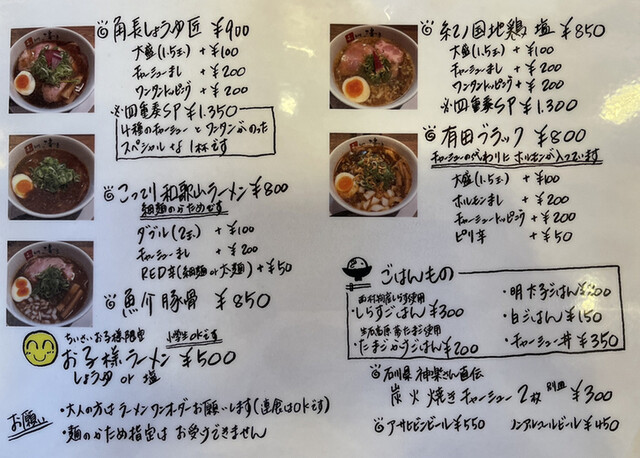 角長しょうゆ匠 ¥900
大盛(1.5玉) +¥100
チャーシューまし +¥200
ワンタントッピング +¥200
※四重奏SP ¥1,350
4種のチャーシューとワンタンがのった
スペシャルな1杯です
こってり和歌山ラーメン ¥800
細麺のかためです
ダブル(2玉) +¥100
チャーシューまし +¥200
RED辛(細麺or太麺) +¥50
魚介豚骨 ¥850
ちいさいお子様限定 小学生OKです
お子様ラーメン ¥500
しょうゆ or 塩
お願い
・大人の方はラーメンワンオーダーお願いします(連食はOKです)
・麺のかため指定はお受けできません
紀ノ国地鶏 塩 ¥850
大盛(1.5玉) +¥100
チャーシューまし +¥200
ワンタントッピング +¥200
※四重奏SP ¥1,300
有田ブラック ¥800
チャーシューの代わりにホルモンが入っています
大盛(1.5玉) +¥100
ホルモンまし +¥200
チャーシュートッピング +¥200
ピリ辛 +¥50
ごはんもの
しらす使用
・しらすごはん ¥300
使用
・たまごかけごはん ¥200
・明太子ごはん ¥200
・白ごはん ¥150
・チャーシュー丼 ¥350
石川県 神楽さん直伝
炭火焼きチャーシュー 2枚 別皿 ¥300
アサヒビンビール ¥550 ノンアルコールビール ¥450